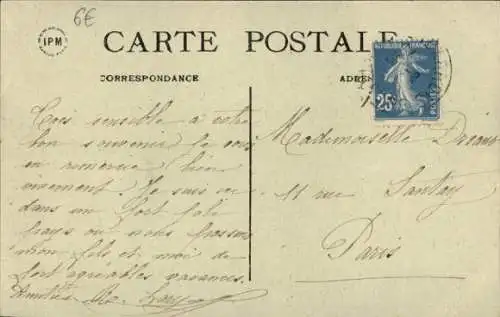 6€
IPM
CARTE POSTALE
CORRESPONDANCE
ADRES
REPUBLIQUE FRANÇAISE
25c
POSTES
Très sensible à votre
bon souvenir je vous
en remercie bien
vivement. Je suis ici
dans un fort joli
pays où nous passons
mon fils et moi de
fort agréables vacances.
Amitiés
Mademoiselle
11 rue Santay
Paris